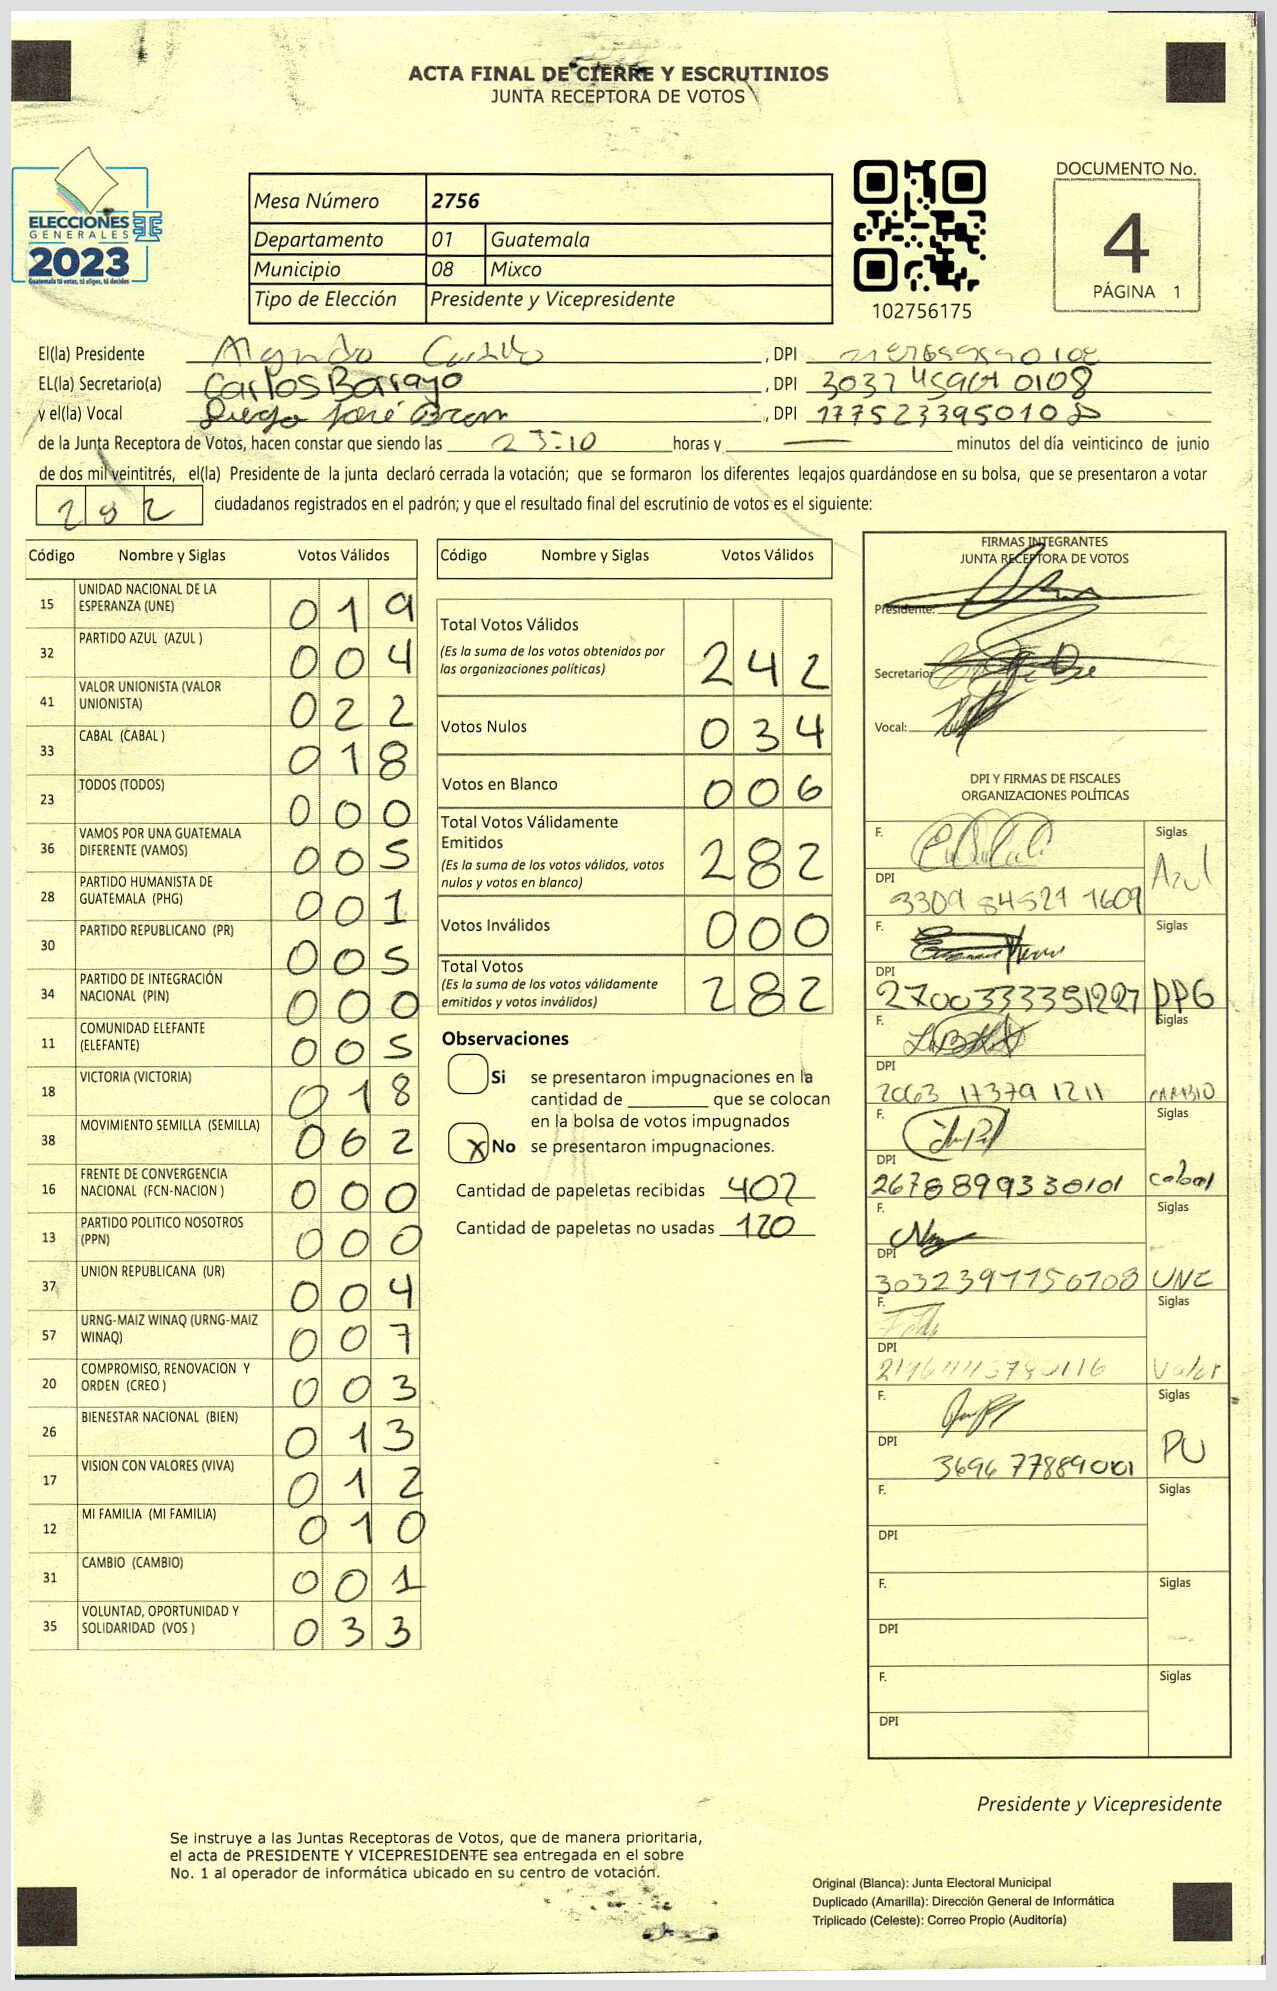 ACTA FINAL DE CIERRE Y ESCRUTINIOS
JUNTA RECEPTORA DE VOTOS
ELECCIONES
GENERALES
2023
Guatemala tú votas, tú eliges, tú decides
Mesa Número 2756
Departamento 01 Guatemala
Municipio 08 Mixco
Tipo de Elección Presidente y Vicepresidente
102756175
DOCUMENTO No.
4
PÁGINA 1
El(la) Presidente , DPI
EL(la) Secretario(a) Carlos Barrayo , DPI
y el(la) Vocal Diego José , DPI 1775233950108
de la Junta Receptora de Votos, hacen constar que siendo las 23:10 horas y — minutos del día veinticinco de junio
de dos mil veintitrés, el(la) Presidente de la junta declaró cerrada la votación; que se formaron los diferentes legajos guardándose en su bolsa, que se presentaron a votar
282 ciudadanos registrados en el padrón; y que el resultado final del escrutinio de votos es el siguiente:
Código Nombre y Siglas Votos Válidos
15 UNIDAD NACIONAL DE LA ESPERANZA (UNE) 019
32 PARTIDO AZUL (AZUL ) 004
41 VALOR UNIONISTA (VALOR UNIONISTA) 022
33 CABAL (CABAL ) 018
23 TODOS (TODOS) 000
36 VAMOS POR UNA GUATEMALA DIFERENTE (VAMOS) 005
28 PARTIDO HUMANISTA DE GUATEMALA (PHG) 001
30 PARTIDO REPUBLICANO (PR) 005
34 PARTIDO DE INTEGRACIÓN NACIONAL (PIN) 000
11 COMUNIDAD ELEFANTE (ELEFANTE) 005
18 VICTORIA (VICTORIA) 018
38 MOVIMIENTO SEMILLA (SEMILLA) 062
16 FRENTE DE CONVERGENCIA NACIONAL (FCN-NACION ) 000
13 PARTIDO POLITICO NOSOTROS (PPN) 000
37 UNION REPUBLICANA (UR) 004
57 URNG-MAIZ WINAQ (URNG-MAIZ WINAQ) 007
20 COMPROMISO, RENOVACION Y ORDEN (CREO ) 003
26 BIENESTAR NACIONAL (BIEN) 013
17 VISION CON VALORES (VIVA) 012
12 MI FAMILIA (MI FAMILIA) 010
31 CAMBIO (CAMBIO) 001
35 VOLUNTAD, OPORTUNIDAD Y SOLIDARIDAD (VOS ) 033
Código Nombre y Siglas Votos Válidos
Total Votos Válidos 242
(Es la suma de los votos obtenidos por
las organizaciones políticas)
Votos Nulos 034
Votos en Blanco 006
Total Votos Válidamente
Emitidos 282
(Es la suma de los votos válidos, votos
nulos y votos en blanco)
Votos Inválidos 000
Total Votos 282
(Es la suma de los votos válidamente
emitidos y votos inválidos)
Observaciones
Si se presentaron impugnaciones en la
cantidad de ________ que se colocan
en la bolsa de votos impugnados
X No se presentaron impugnaciones.
Cantidad de papeletas recibidas 402
Cantidad de papeletas no usadas 120
FIRMAS INTEGRANTES
JUNTA RECEPTORA DE VOTOS
Presidente:
Secretario:
Vocal:
DPI Y FIRMAS DE FISCALES
ORGANIZACIONES POLÍTICAS
F. Siglas
DPI 3309 84521 1609 Azul
F. Siglas
DPI 2700333351227 PPG
F. Siglas
DPI 2063 17379 1211 CAMBIO
F. Siglas
DPI 2678899330101 Cabal
F. Siglas
DPI UNE
F. Siglas
DPI Valor
F. Siglas
DPI 3696 77889 0101 PU
F. Siglas
DPI
F. Siglas
DPI
F. Siglas
DPI
Presidente y Vicepresidente
Se instruye a las Juntas Receptoras de Votos, que de manera prioritaria,
el acta de PRESIDENTE Y VICEPRESIDENTE sea entregada en el sobre
No. 1 al operador de informática ubicado en su centro de votación.
Original (Blanca): Junta Electoral Municipal
Duplicado (Amarilla): Dirección General de Informática
Triplicado (Celeste): Correo Propio (Auditoría)